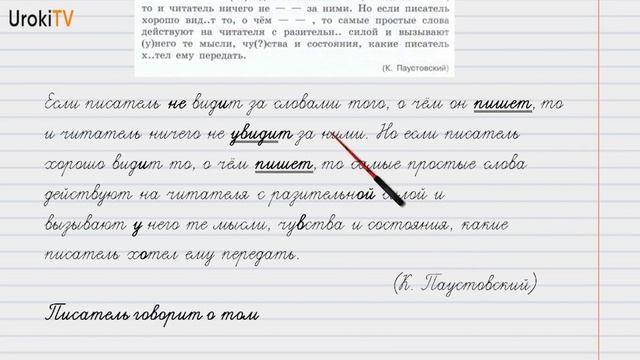 UrokiTV
то и читатель ничего не — — за ними. Но если писатель
хорошо вид..т то, о чём — — , то самые простые слова
действуют на читателя с разительн.. силой и вызывают
(у)него те мысли, чу(?)ства и состояния, какие писатель
х..тел ему передать.
(К. Паустовский)
Если писатель не видит за словами того, о чём он пишет, то
и читатель ничего не увидит за ними. Но если писатель
хорошо видит то, о чём пишет, то самые простые слова
действуют на читателя с разительной силой и
вызывают у него те мысли, чувства и состояния, какие
писатель хотел ему передать.
(К. Паустовский)
Писатель говорит о том